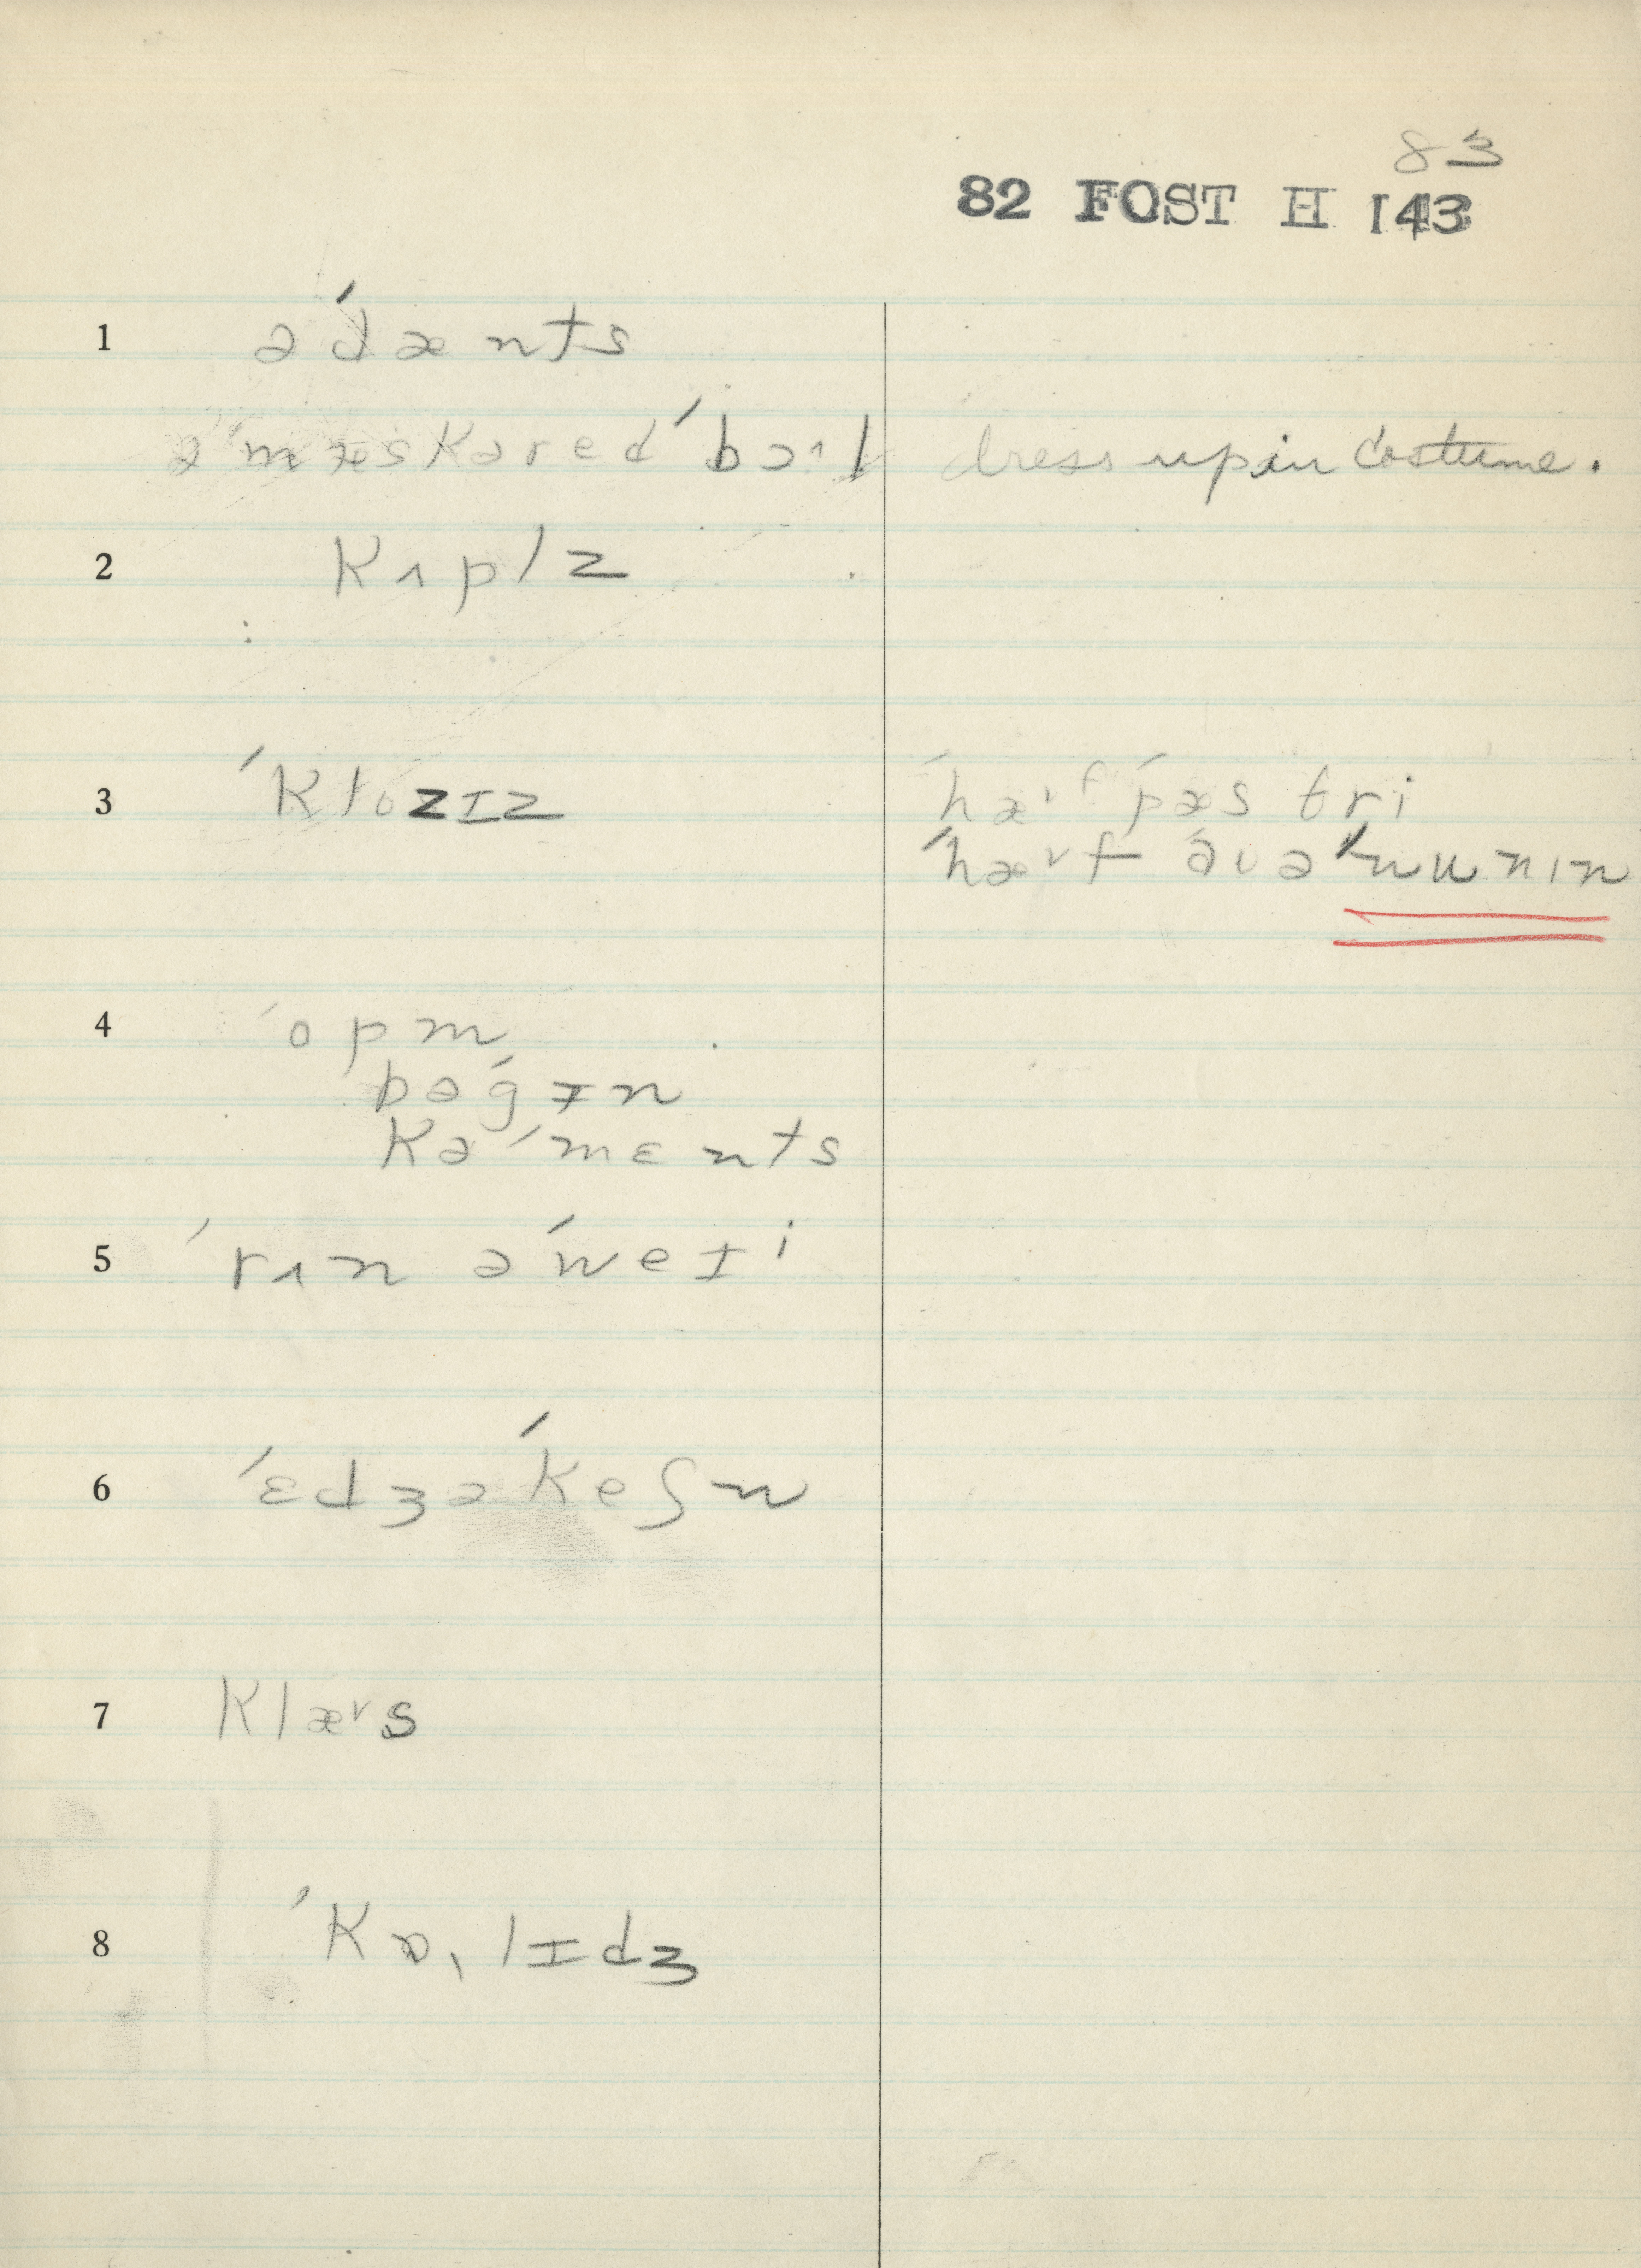 83
82 FOST H 143
1 ə ˈdænts
əˈmæskəredˈbɔ˄l dress up in costume.
2 kʌplz
3 ˈklozɪz ˈhæ˅f ˈpæs tri
ˈhæ˅f ˈavəˈnunɪn
4 ˈopm
bəˈgɪn
kəˈmɛnts
5 ˈrʌn əˈweɪi
6 ˈɛdʒəˈkeʃn
7 klæ˅s
8 ˈkɒˌlɪdʒ